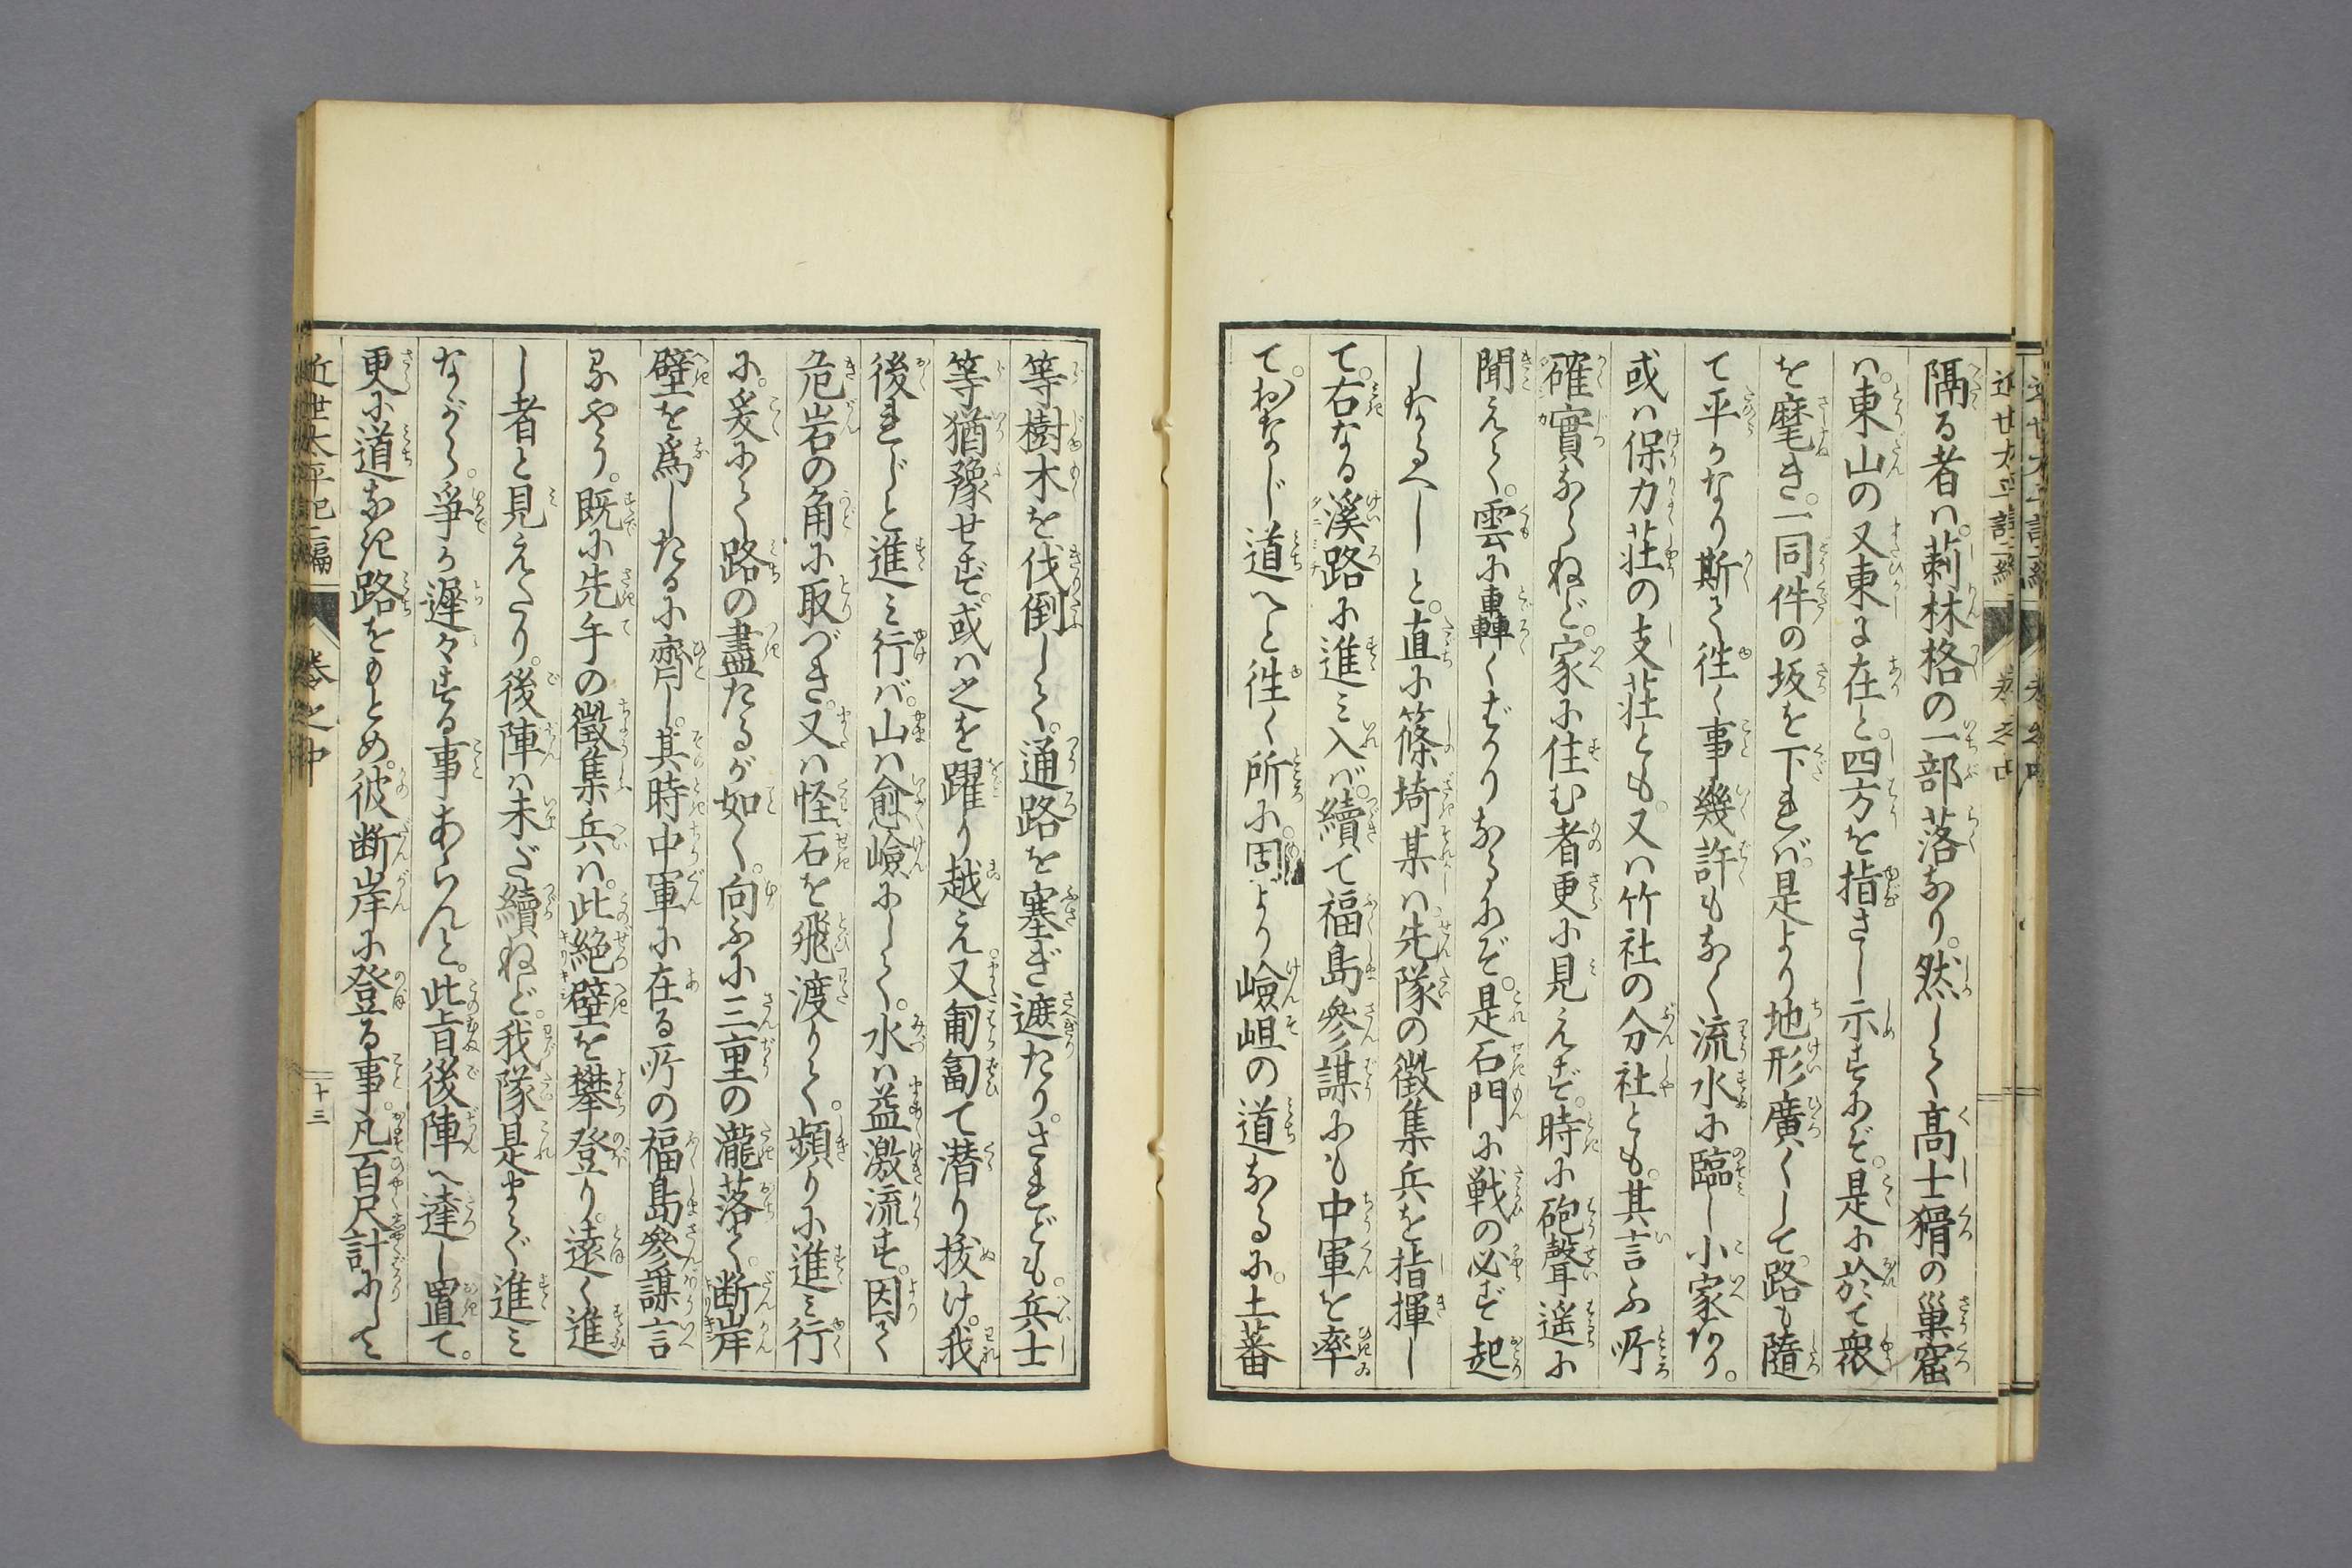 隔る者ハ。莿林格の一部落なり。然して高士猾の巣窟
ハ。東山の又東に在と。四方を指さし示すにぞ。是に於て衆
を麾き。一同件の坂を下れバ。是より地形廣くして。路も隨
て平かなり斯て徃く事幾許もなく流水に臨し小家あり。
或ハ保力莊の支莊とも。又ハ竹社の分社とも。其言ふ所
確實ならねど。家に住む者更に見えず。時に砲聲遥に
聞えて。雲に轟くばかりなるにぞ。是石門に戦の必ず起
しなるべしと。直に篠埼某ハ先隊の徴集兵を指揮し
て。右なる溪路に進み入バ。續て福島參謀にも中軍を率
て。おなじ道へと徃く所に。固より嶮岨の道なるに。土蕃
等樹木を伐倒して。通路を塞ぎ遮たり。されども。兵士
等猶豫せず。或ハ之を躍り越え。又匍匐て潜り拔け。我
後れじと進み行バ。山ハ愈嶮にして。水ハ益激流す。因て
危岩の角に取づき。又ハ怪石を飛渡りて。頻りに進み行
に。爰にて路の盡たるが如く。向ふに三重の瀧落て。断岸
壁を爲したるに齊し。其時中軍に在る所の福島參謀言
るやう。既に先午の徴集兵ハ。此絶壁を攀登り。遠く進
し者と見えたり。後陣ハ未だ續ねど。我隊是まで進み
ながら。爭か遲々する事あらんと。此旨後陣へ達し置て。
更に道なき路をもとめ。彼断岸に登る事。凡百尺計にして
近世太平記二編
巻之中
十三